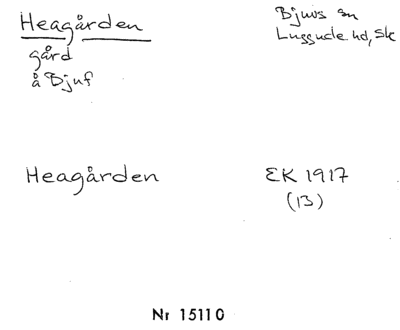 Heagården
gård
å Bjuf
Bjuvs sn
Luggude hd, Sk
Heagården
EK 1917
(13)
Nr 15110